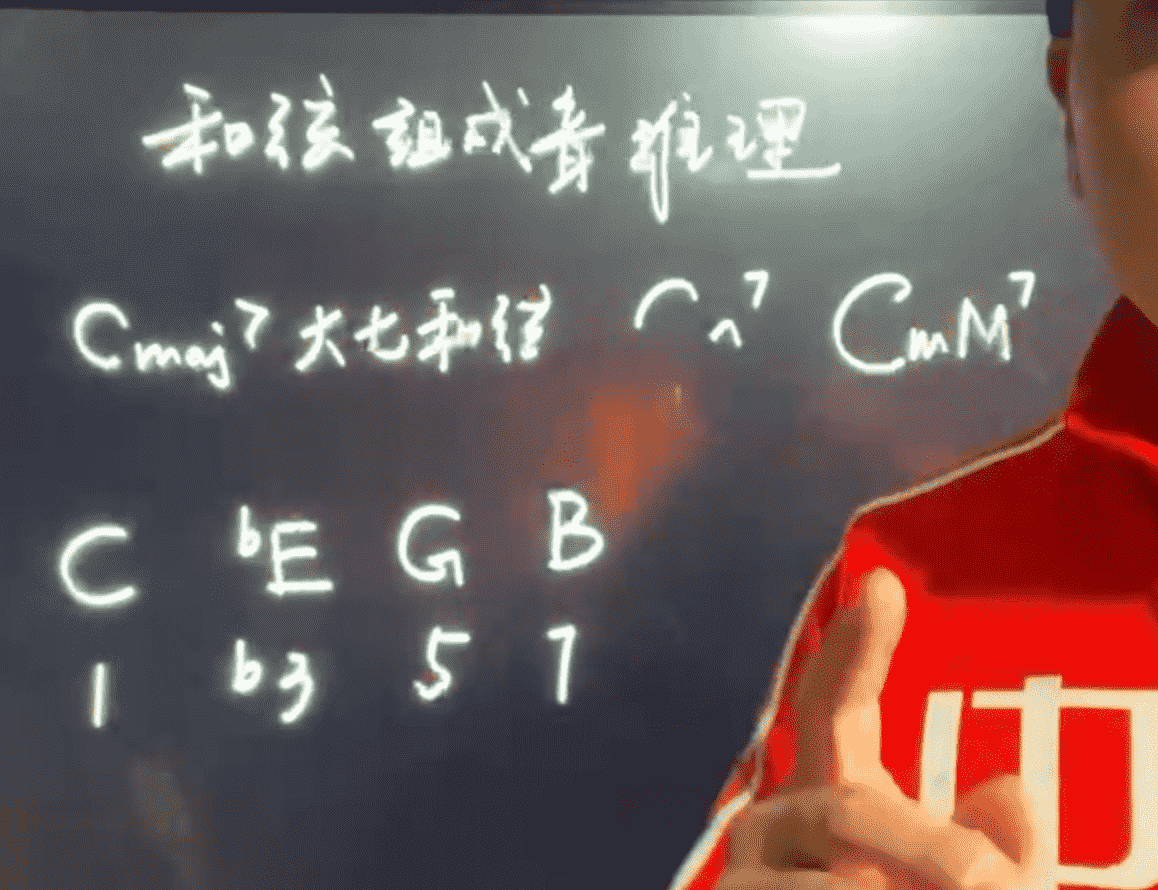 和弦组成音推理
Cmaj7 大七和弦 CmM7
C bE G B
1 b3 5 7